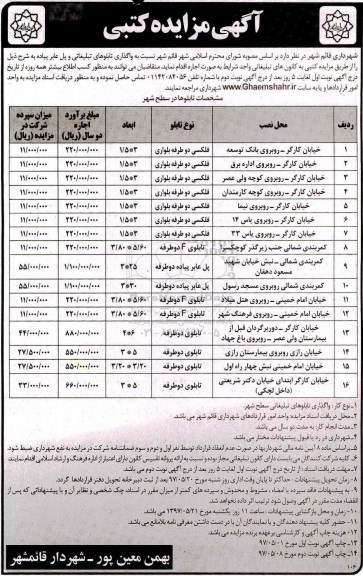 آگهی مزایده کتبی
شهرداری قائم شهر در نظر دارد بر اساس مصوبه شورای محترم اسلامی شهر قائم شهر نسبت به واگذاری تابلوهای تبلیغاتی و پل عابر پیاده به شرح ذیل
را از طریق مزایده کتبی به کانون های تبلیغاتی واجد شرایط به صورت اجاره اقدام نماید. متقاضیان می توانند به منظور کسب اطلاع بیشتر همه روزه از تاریخ
درج آگهی نوبت اول لغایت ۵ روز بعد از درج آگهی نوبت دوم با شماره تلفن ۰۱۱۴۲۰۸۴۰۵۴ تماس حاصل نموده و به منظور دریافت اسناد مزایده به واحد
امور قراردادها و یا به سایت www.Ghaemshahr.ir شهرداری مراجعه نمایند.
مشخصات تابلوها در سطح شهر
ردیف محل نصب نوع تابلو ابعاد مبلغ برآورد اجاره دو سال (ریال) میزان سپرده شرکت در مزایده (ریال)
۱ خیابان کارگر - روبروی بانک توسعه فلکسی دو طرفه بلواری ۳*۱/۵ ۲۲۰/۰۰۰/۰۰۰ ۱۱/۰۰۰/۰۰۰
۲ خیابان کارگر - روبروی اداره برق فلکسی دو طرفه بلواری ۳*۱/۵ ۲۲۰/۰۰۰/۰۰۰ ۱۱/۰۰۰/۰۰۰
۳ خیابان کارگر - روبروی کوچه ولی عصر فلکسی دو طرفه بلواری ۳*۱/۵ ۲۲۰/۰۰۰/۰۰۰ ۱۱/۰۰۰/۰۰۰
۴ خیابان کارگر - روبروی کوچه کارمندان فلکسی دو طرفه بلواری ۳*۱/۵ ۲۲۰/۰۰۰/۰۰۰ ۱۱/۰۰۰/۰۰۰
۵ خیابان کارگر - روبروی نیما فلکسی دو طرفه بلواری ۳*۱/۵ ۲۲۰/۰۰۰/۰۰۰ ۱۱/۰۰۰/۰۰۰
۶ خیابان کارگر - روبروی یاس ۱۴ فلکسی دو طرفه بلواری ۳*۱/۵ ۲۲۰/۰۰۰/۰۰۰ ۱۱/۰۰۰/۰۰۰
۷ خیابان کارگر - روبروی یاس ۳۳ فلکسی دو طرفه بلواری ۳*۱/۵ ۲۲۰/۰۰۰/۰۰۰ ۱۱/۰۰۰/۰۰۰
۸ کمربندی شمالی جنب زیرگذر کوچکسرا تابلوی F دوطرفه ۵/۶۰*۳/۸۰ ۲۲۰/۰۰۰/۰۰۰ ۱۱/۰۰۰/۰۰۰
۹ کمربندی شمالی - نبش خیابان شهید مسعود دهقان پل عابر پیاده دوطرفه ۲۵*۳ ۱/۱۰۰/۰۰۰/۰۰۰ ۵۵/۰۰۰/۰۰۰
۱۰ کمربندی شمالی روبروی مسجد رسول پل عابر پیاده دوطرفه ۳۰*۳ ۱/۱۰۰/۰۰۰/۰۰۰ ۵۵/۰۰۰/۰۰۰
۱۱ خیابان امام خمینی - روبروی هتل میلاد تابلوی F دوطرفه ۵/۶۰*۳/۸۰ ۲۲۰/۰۰۰/۰۰۰ ۱۱/۰۰۰/۰۰۰
۱۲ خیابان امام خمینی - روبروی فرهنگ شهر تابلوی F دوطرفه ۵/۶۰*۳/۸۰ ۲۲۰/۰۰۰/۰۰۰ ۱۱/۰۰۰/۰۰۰
۱۳ خیابان کارگر - دوربرگردان قبل از بیمارستان ولی عصر - روبروی باغ جهاد تابلوی دوطرفه ۶*۴ ۸۸۰/۰۰۰/۰۰۰ ۴۴/۰۰۰/۰۰۰
۱۴ خیابان رازی روبروی بیمارستان رازی تابلوی دوطرفه ۵*۳ ۵۵۰/۰۰۰/۰۰۰ ۲۷/۵۰۰/۰۰۰
۱۵ خیابان امام خمینی نبش چهار راه اول تابلوی دوطرفه ۳/۲۰*۳/۲۰ ۵۵۰/۰۰۰/۰۰۰ ۲۷/۵۰۰/۰۰۰
۱۶ خیابان کارگر ابتدای خیابان دکتر شریعتی (داخل لچکی) تابلوی دوطرفه ۵*۳ ۶۶۰/۰۰۰/۰۰۰ ۳۳/۰۰۰/۰۰۰
۱-نوع کار: واگذاری تابلوهای تبلیغاتی سطح شهر.
۲-محل دریافت اسناد مزایده: واحد امور قراردادهای شهرداری قائم شهر می باشد.
۳-مدت انجام کار: به مدت دو سال می باشد.
۴-شهرداری در رد یا قبول پیشنهادات مختار می باشد.
۱۲-هزینه چاپ آگهی و کارشناسی برعهده برنده مزایده می باشد.
۱۳-چاپ آگهی نوبت اول مورخ ۹۷/۰۵/۰۱
۱۴-چاپ آگهی نوبت دوم مورخ ۹۷/۰۵/۰۸
بهمن معین پور - شهردار قائمشهر